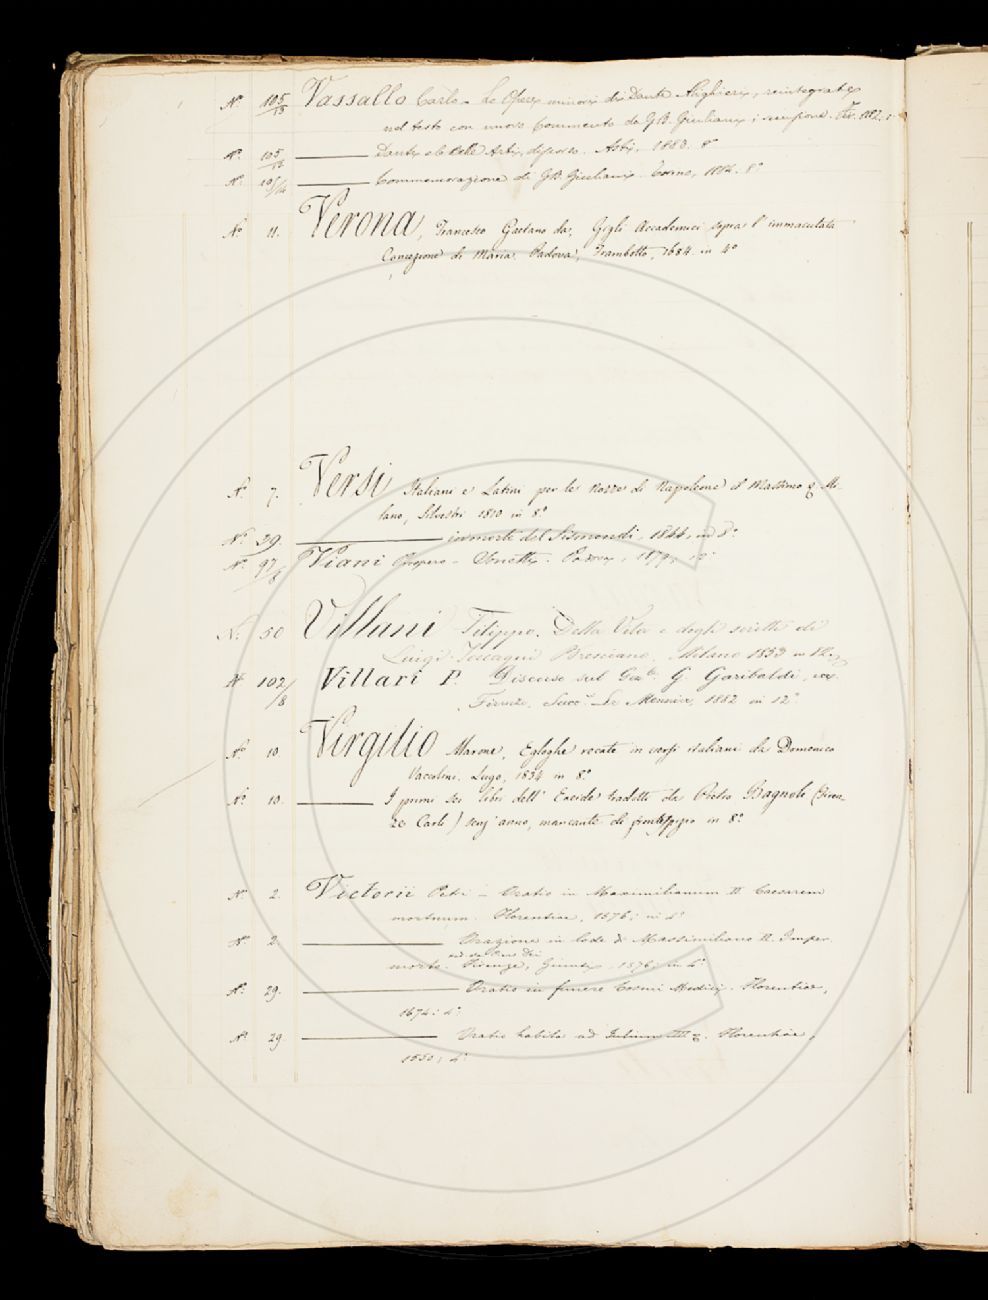 N.º 105/13 Vassallo Carlo - Le Opere minori di Dante Alighieri, reintegrate
nel testo con nuovo Commento da G.B. Giuliani; recensione. Fir. 1882.
N.º 105/13 ——— Dante e le Belle Arti, discorso. Asti, 1883. 8º
N.º 105/14 ——— Commemorazione di G.B. Giuliani. 1884. 8º
N.º 11. Verona, Francesco Gaetano da, Gigli Accademici sopra l'immacolata
Concezione di Maria. Padova, Frambotto, 1684. in 4º
N.º 7. Versi Italiani e Latini per le Nozze di Napoleone il Massimo & Mi-
lano, Silvestri 1810 in 8º
N.º 29. ——— in morte del Sismondi, 1844, in 8º
N.º 97/8 Viani Prospero - Sonetti. Padova, 1879, 12º
N.º 50 Villani Filippo. Della Vita e degli scritti di
Luigi Bresciano. Milano 1853 in 12
N.º 102/8 Villari P. Discorso sul G. Garibaldi,
Firenze, Succ.ri Le Monnier, 1882 in 12º
N.º 10. Virgilio Marone, Egloghe recate in versi italiani da Domenico
Vaccolini. Lugo, 1834 in 8º
N.º 10. ——— I primi sei libri dell'Eneide tradotti da Pietro Bagnoli (Firen-
ze Carli) senz'anno, mancante di frontispizio in 8º
N.º 2. Victorii Petri - Oratio in Maximilianum II Caesarem
mortuum. Florentiae, 1576; in 4º
N.º 2. ——— Orazione in lode di Massimiliano II. Imper.
morto. Firenze, Giunti, 1576; in 4º
N.º 29. ——— Oratio in funere Cosmi Medicis. Florentiae,
1574; 4º
N.º 29. ——— Oratio habita ad Iulium III. Florentiae,
1550; 4º